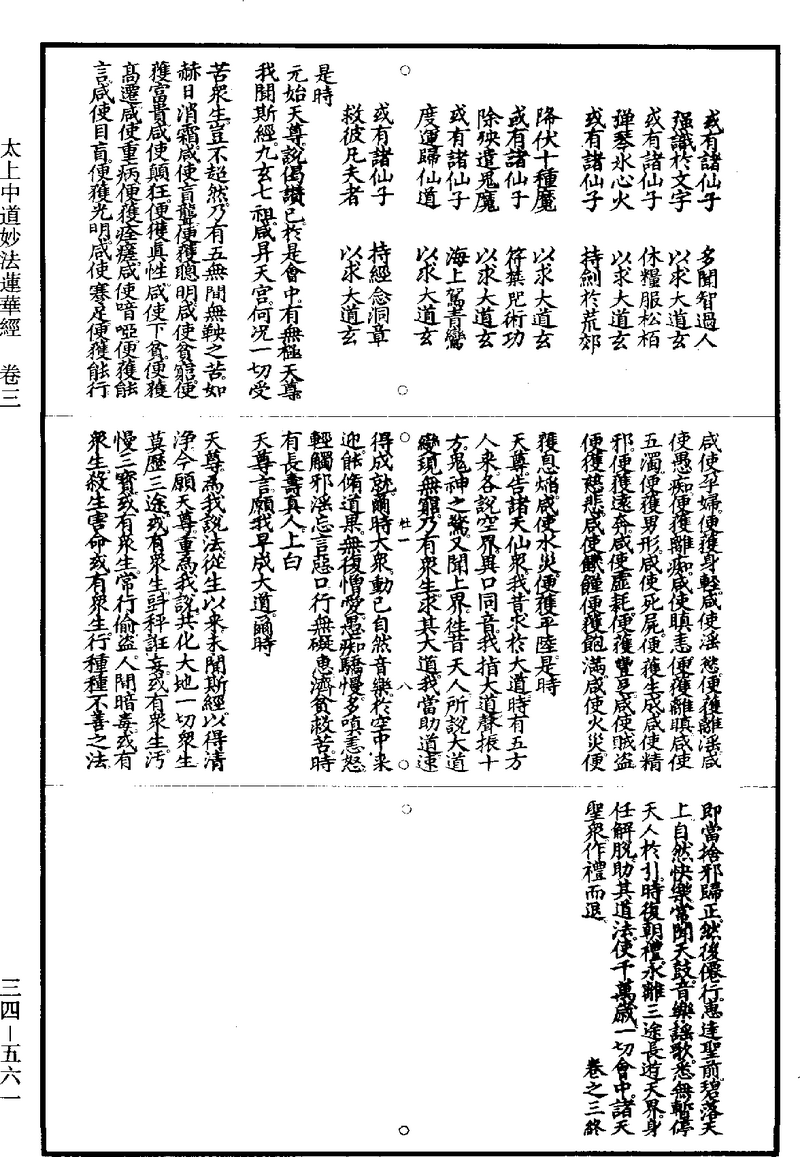 太上中道妙法蓮華經 卷三
三四—五六一
或有諸仙子 多聞智過人
强識於文字 以求大道玄
或有諸仙子 休糧服松栢
彈琴氷心火 以求大道玄
或有諸仙子 持劍於荒郊
降伏十種魔 以求大道玄
或有諸仙子 符禁咒術功
除殃遣鬼魔 以求大道玄
或有諸仙子 海上駕青鸞
度運歸仙道 以求大道玄
或有諸仙子 持經念洞章
救彼凡夫者 以求大道玄
是時
元始天尊說偈讚已於是會中有無極天尊
我聞斯經九玄七祖咸昇天宫何況一切受
苦衆生豈不超然乃有五無間無鞅之苦如
赫日消霜咸使盲聾便獲聰明咸使貧窮便
獲富貴咸使顛狂便獲真性咸使下賁便獲
高遷咸使重病便獲痊癒咸使喑啞便獲能
言咸使目盲便獲光明咸使蹇足便獲能行
咸使孕婦便獲身輕咸使淫慾便獲離淫咸
使愚痴便獲離痴咸使瞋恚便獲離瞋咸使
五濁便獲男形咸使死屍便獲生成咸使精
邪便獲速奔咸使虛耗便獲豐足咸使賊盜
便獲慈悲咸使饑饉便獲飽滿咸使火災便
獲息焰咸使水災便獲平陸是時
天尊告諸天仙衆我昔求於大道時有五方
人來各說空界異口同音我指大道聲振十
方鬼神之驚又聞上界徃昔天人所說大道
變現無窮乃有衆生求其大道我當助道速
得成就爾時大衆動已自然音樂於空中來
杜一 八
迎能脩道果無復憎愛愚痴驕慢多嗔恚怒
輕觸邪淫忘言惡口行無礙惠濟貧救苦時
有長壽真人上白
天尊言願我早成大道爾時
天尊爲我說法從生以來未聞斯經以得清
淨今願天尊重爲我說共化大地一切衆生
莫歷三途或有衆生斗秤誑妄或有衆生汚
慢三寳或有衆生常行偷盜人間暗毒或有
衆生殺生害命或有衆生行種種不善之法
即當捨邪歸正然後僊行惠達聖前碧落天
上自然快樂常聞天鼓音樂謡歌悉無暫停
天人於引時復朝禮永離三途長遊天界身
任解脫助其道法使千萬歲一切會中諸天
聖衆作禮而退 卷之三終